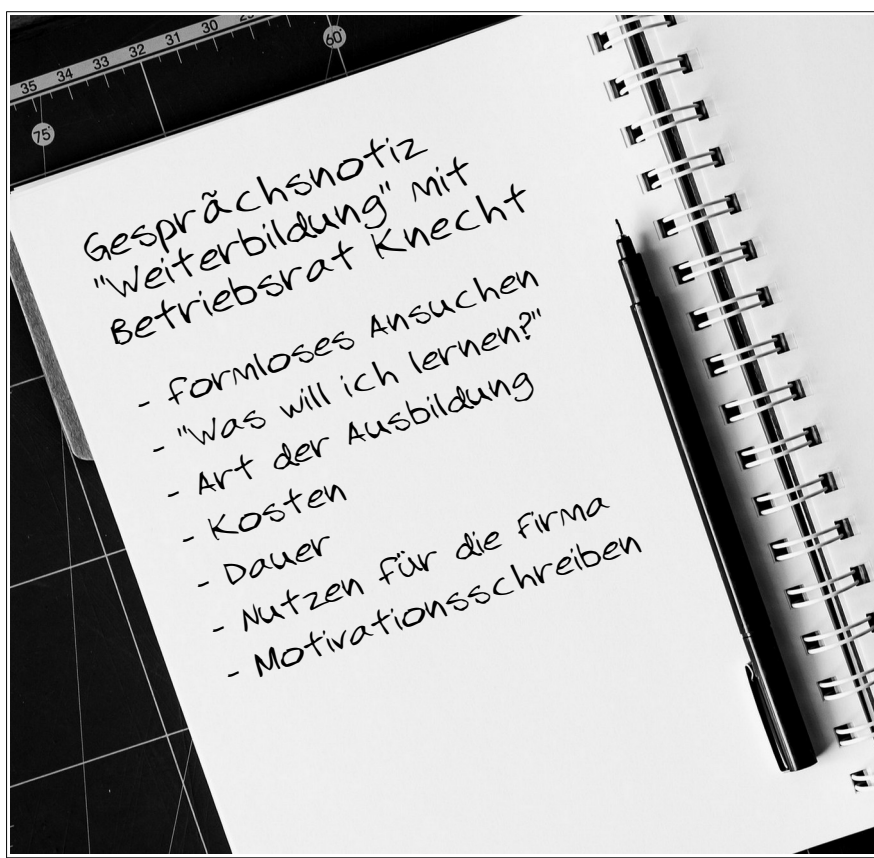 35 34 33 32 31 30
60°
75°
Gesprächsnotiz
"Weiterbildung" mit
Betriebsrat Knecht
- formloses Ansuchen
- "Was will ich lernen?"
- Art der Ausbildung
- Kosten
- Dauer
- Nutzen für die Firma
- Motivationsschreiben